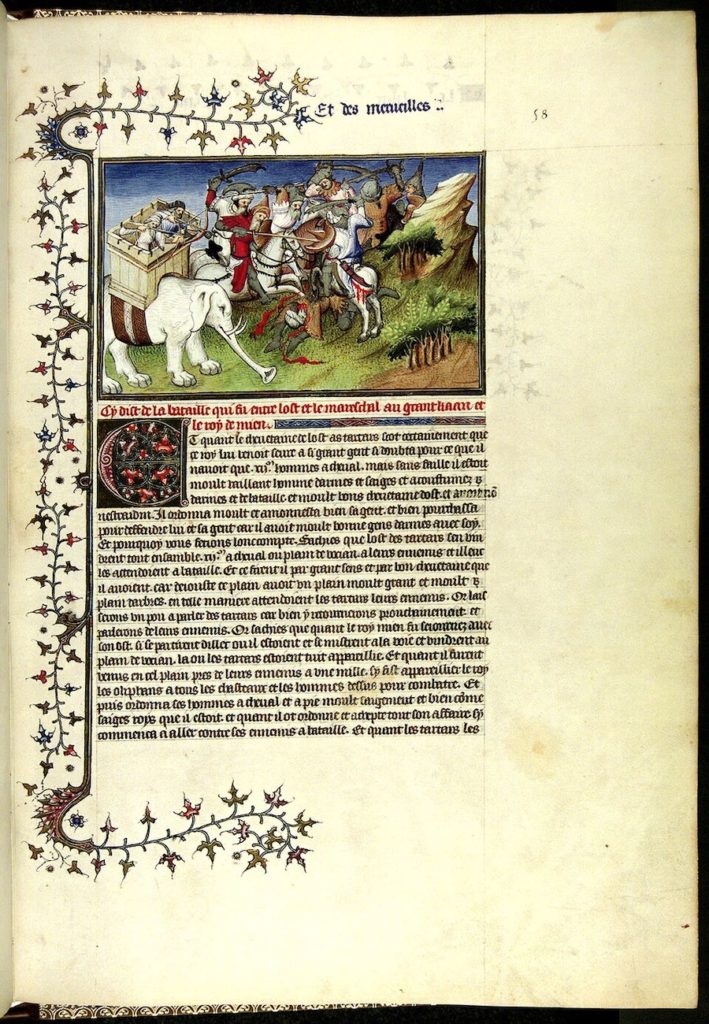 Et des merueilles :.
58
Cy dist de la bataille qui fu entre lost et le mareschal au grant kaan et
le roy de mien.
Et quant le cheuetaine de lost as tartars scot certainement que
ce roy lui venoit seure a si grant gent si doubta pour ce que il
nauoit que .xij. hommes a cheual. mais sans faille il estoit
moult vaillant homme darmes et saiges et acoustume
darmes et de bataille. et moult bons cheuetaine dost. et
Il ordonna moult et amonnesta bien sa gent. et bien pourchassa
pour deffendre lui et sa gent car il auoit moult bonne gens darmes auec soy.
Et pourquoy vous feroi one lonc compte. Sachies que lost des tartars sen vin
drent tout ensamble .xij. a cheual ou plain de vocian a leurs ennemis et illeuc
les attendoient a bataille. Et ce firent il par grant sens et par bon cheuetaine que
il auoient. car deiouste ce plain auoit vn plain moult grant et moult
plain darbres. en telle maniere attendoient les tartars leurs ennemis. Or lais
serons vn pou a parler des tartars car bien y retournerons prouchainement. et
parlerons de leurs ennemis. Or sachies que quant le roy mien fu seiournez auec
son ost. si se partirent dillec ou il estoient et se mistrent a la voie et vindrent au
plain de vocian. la ou les tartars estoient tuit appareillie. Et quant il furent
venus en cel plain pres de leurs ennemis a vne mille. sy fist appareillier le roy
les oliphans a tous les chasteaux et les hommes dessus pour combatre. Et
puis ordonna ses hommes a cheual et a pie moult saigement et bien come
saiges roys que il estoit. et quant il ot ordonne et adrepte tout son affaire sy
commenca a aller contre ses ennemis a bataille. Et quant les tartars les